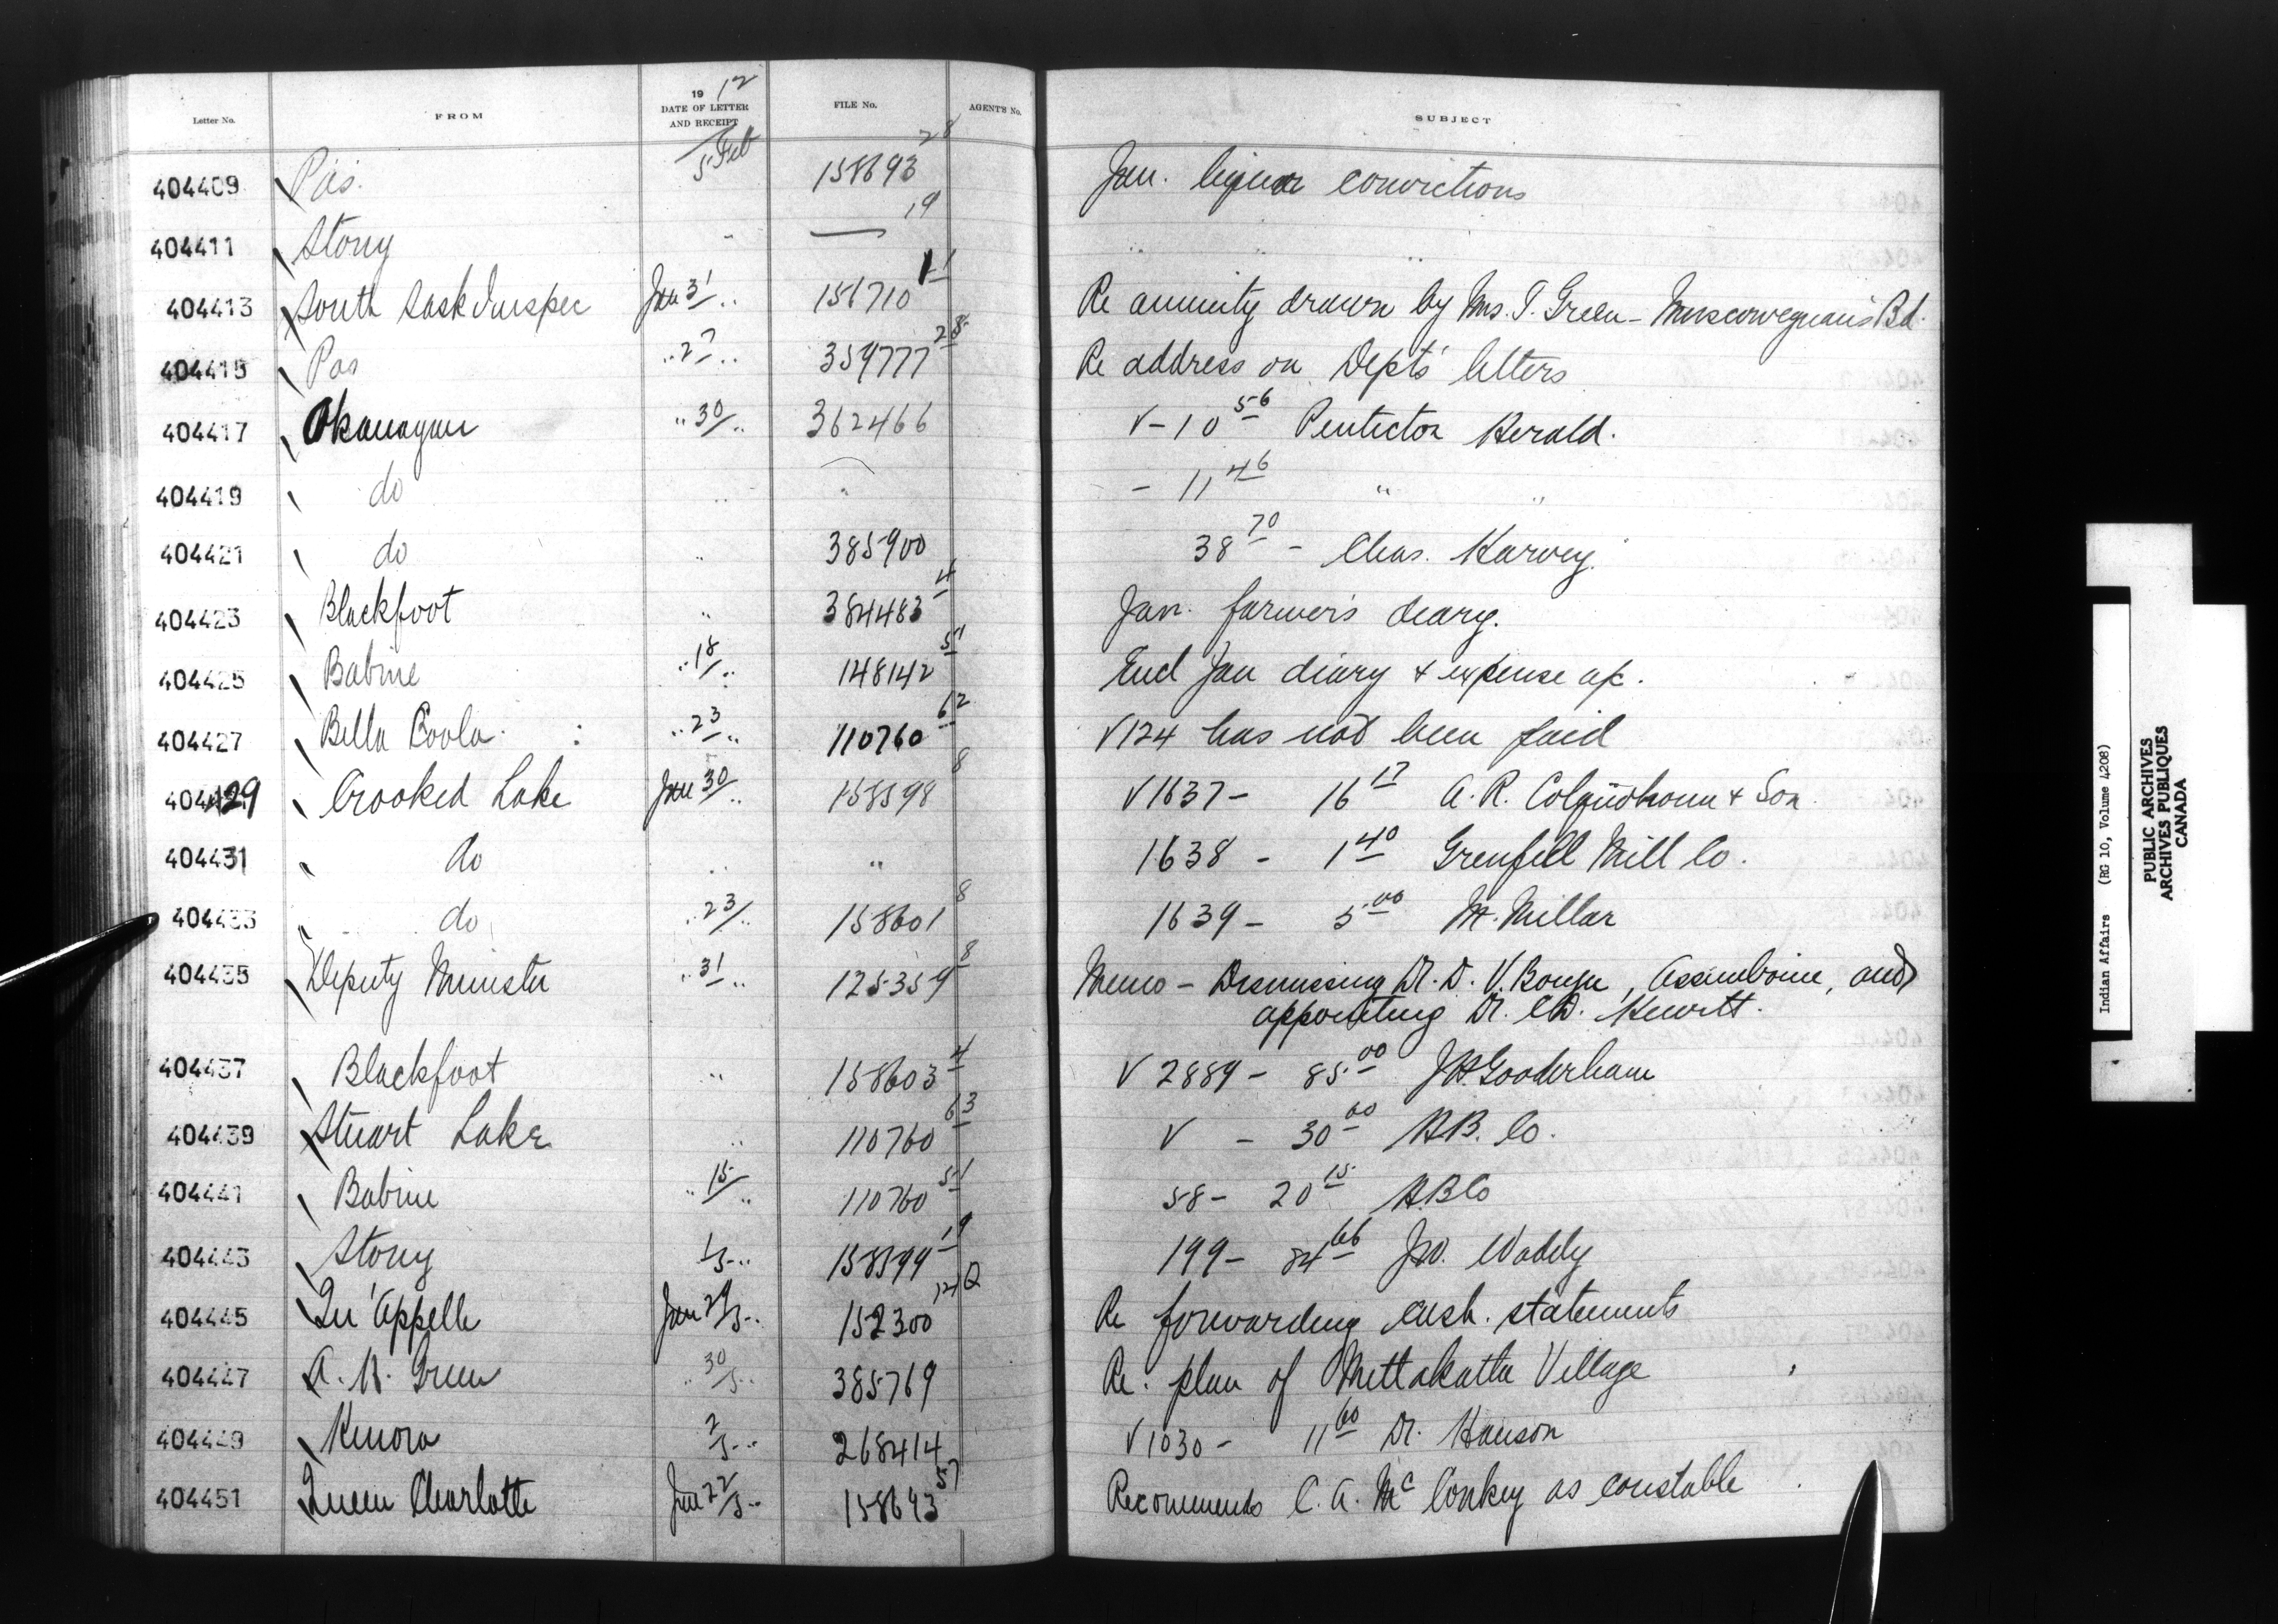 Letter No. FROM 19 12 DATE OF LETTER AND RECEIPT FILE No. AGENT'S No. SUBJECT
404409 Pas. 5 Feb 158693 28 Jan. liquor convictions
404411 Stony " 19 " " "
404413 South Sask Inspec Jan 31/.. 151710 11 Re annuity drawn by Mrs. T. Green - Muscowequan's Bd.
404415 Pas .. 27 .. 359777 28 Re address on Dept's letters
404417 Okanagan .. 30/.. 362466 V - 10 56 Penticton Herald.
404419 do .. " - 11 46 " "
404421 do .. 385900 38 70 - Chas. Harvey.
404423 Blackfoot .. 384483 4 Jan. farmer's diary.
404425 Babine .. 18/.. 148142 51 Encl Jan diary & expense a/c.
404427 Bella Coola .. 23/.. 110760 62 V124 has not been paid
404429 Crooked Lake Jan 30/.. 158598 8 V1637 - 16 17 A. R. Colquohoun & Son
404431 do .. " 1638 - 1 40 Grenfell Mill Co.
404433 do .. 23/.. 158601 8 1639 - 5 00 M. Millar
404435 Deputy Minister .. 31 .. 125359 8 Memo - Dismissing Dr. D. V. , Assiniboine, and
appointing Dr. C.D. Hewitt.
404437 Blackfoot .. 158603 4 V 2889 - 85 00 J H Gooderham
404439 Stuart Lake .. 110760 63 V - 30 00 H.B. Co.
404441 Babine .. 15/.. 110760 51 58 - 20 15 H.B Co
404443 Stony 1/5 .. 158599 19 199 - 84 66 Jno. Waddy
404445 Qu'Appelle Jan 29/5 .. 152300 12Q Re forwarding cash. statements
404447 A. H. Green .. 30/5 .. 385769 Re. plan of Mettakatta Village
404449 Kenora 2/5 .. 268414 V1030 - 11 60 Dr. Hanson
404451 Queen Charlotte Jan 22/5 .. 158693 57 Recommends C. A. McConkey as constable
Indian Affairs (RG 10, Volume 4208)
PUBLIC ARCHIVES
ARCHIVES PUBLIQUES
CANADA